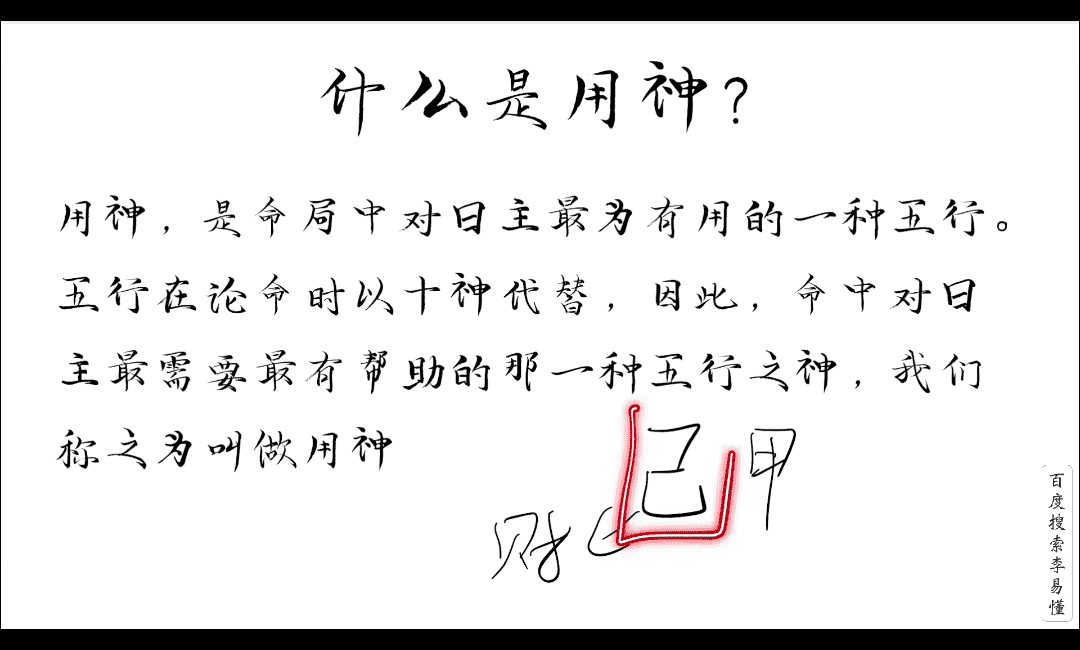 什么是用神？
用神，是命局中对日主最为有用的一种五行。
五行在论命时以十神代替，因此，命中对日
主最需要最有帮助的那一种五行之神，我们
称之为叫做用神
己 甲
财
百度搜索李易懂